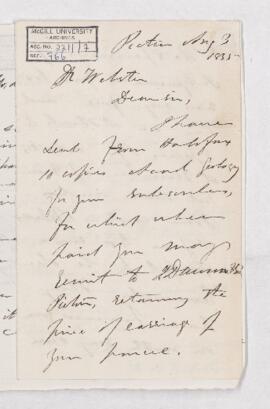 McGILL UNIVERSITY
ARCHIVES
ACC. NO. 2211/7
REF. 766
Pictou Aug 3
1855
Dr Webster
Dear Sir,
I have
sent from Halifax
10 copies Acad Geology
for your subscribers,
for which when
paid you may
remit to J Dawson &
Pictou, retaining the
price of carriage of
your parcel.